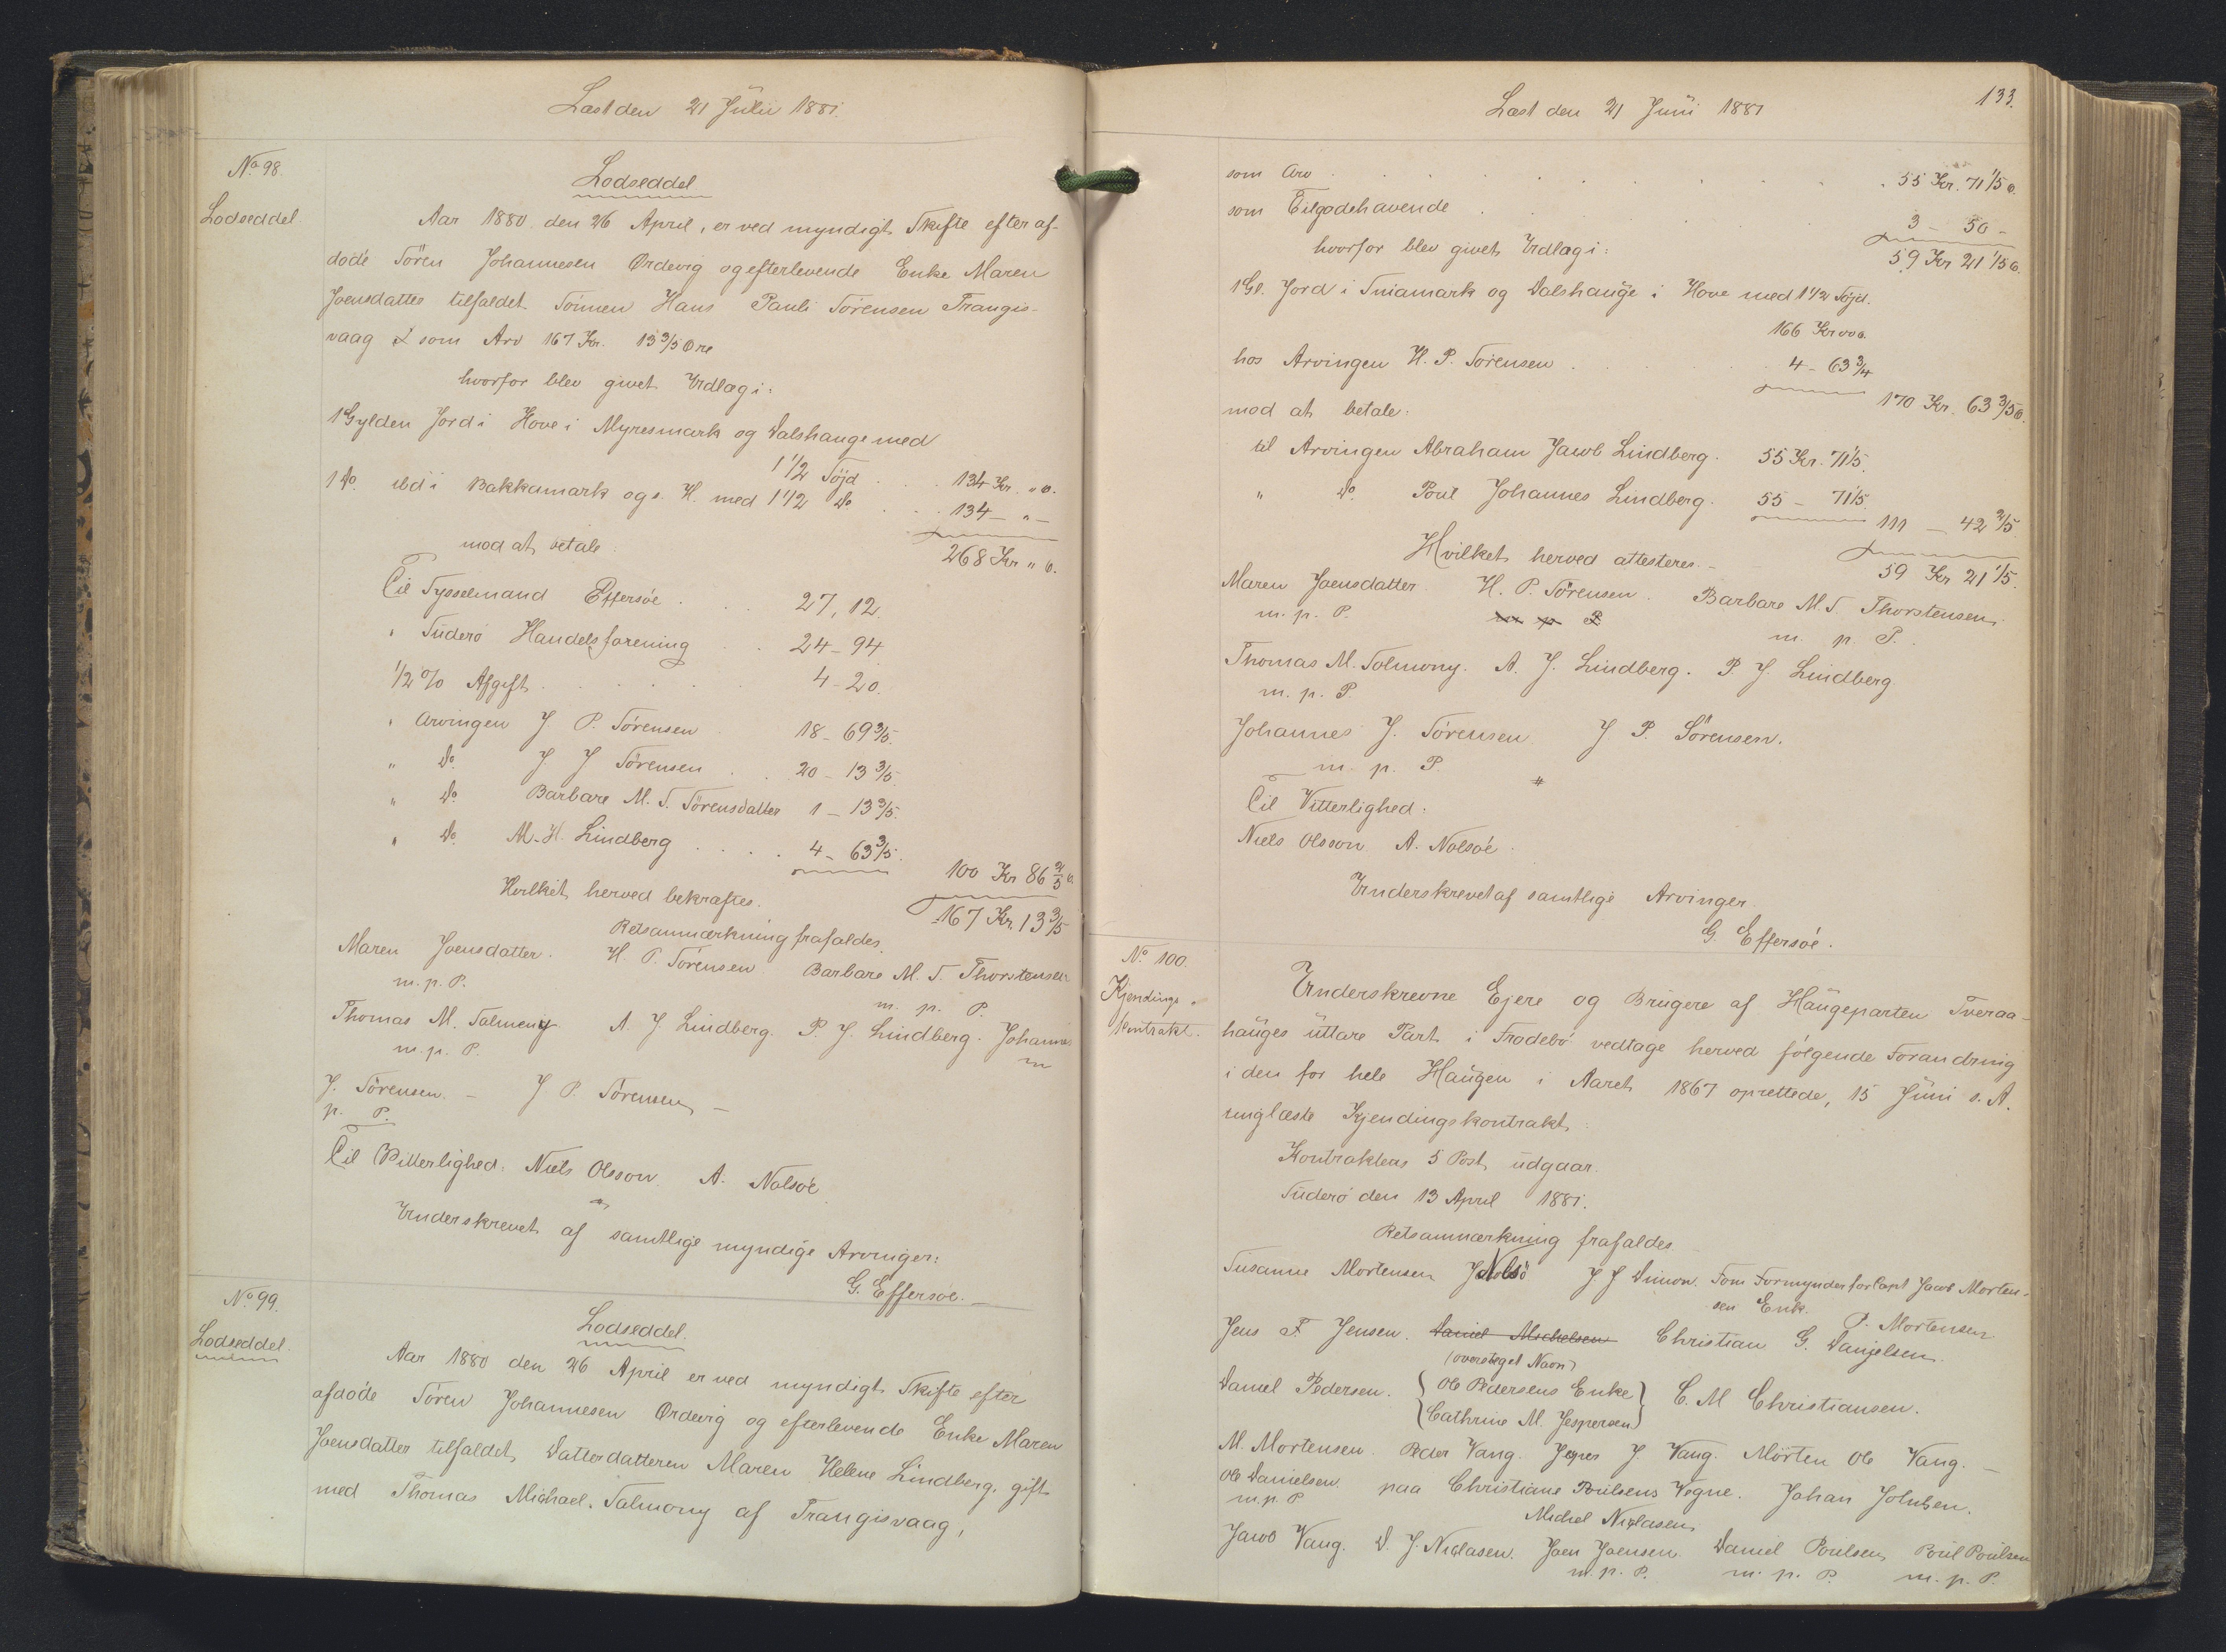 Læst den 21 Juli 1881.
No 98.
Lodseddel
Lodseddel
Aar 1880 den 26 April, er ved myndigt Skifte efter af-
döde Sören Johannesen Ordevig og efterlevende Enke Maren
Joensdatter tilfaldet Sönnen Hans Pauli Sörensen Trangis-
vaag som Arv 167 Kr. 13 3/5 Øre
hvorfor blev givet Udlæg i:
1 Gylden Jord i Hove i Myresmark og Dalshauge med
1 1/2 Söjd . . . 134 Kr. " ø.
1 Do ibd i Bakkamark og s. H. med 1 1/2 Do . . . 134 - " -
268 Kr " ø.
mod at betale
Til Sysselmand Effersöe . . . 27, 12.
" Süderö Handelsforening . . 24 - 94
1/2 % Afgift . . . . . 4 - 20.
" Arvingen J P. Sörensen 18 - 69 3/5.
" Do. J J Sörensen . . 20 - 13 3/5
" Do Barbare M. S. Sörensdatter 1 - 13 3/5.
" Do M. H. Lindberg . . . . 4 - 63 3/5.
100 Kr 86 2/5 ø.
167 Kr. 13 3/5
Hvilket herved bekræftes.
Retsanmærkning frafaldes.
Maren Joensdatter. H. P. Sörensen Barbare M. S. Thorstensen
m. p. P. m. p. P.
Thomas M. Salmony A. J. Lindberg. P. J. Lindberg. Johannes
m. p. P. m
J. Sörensen. - J P. Sörensen -
p. P.
Til Vitterlighed: Niels Olsson. A. Nolsöe
Underskrevet af samtlige myndige Arvinger:
G. Effersöe. -
No 99.
Lodseddel.
Lodseddel.
Aar 1880 den 26 April er ved myndigt Skifte efter
afdöde Sören Johannesen Ordevig og efterlevende Enke Maren
Joensdatter tilfaldet Datterdatteren Maren Helene Lindberg, gift
med Thomas Michael Salmony af Trangisvaag,
Læst den 21 Juni 1881
133.
som Arv . . . . . . . 55 Kr. 71 1/5 ø.
som Tilgodehavende . . . 3 - 50 -
59 Kr 21 1/5 ø.
hvorfor blev givet Udlæg i:
1 Gl. Jord i Smiamark og Dalshauge i Hove med 1 1/2 Söjd.
166 Kr 00 ø.
hos Arvingen H. P. Sörensen . . . . 4 - 63 3/4
170 Kr. 63 3/5 ø.
mod at betale:
til Arvingen Abraham Jacob Lindberg. 55 Kr. 71 1/5.
" Do. Poul Johannes Lindberg. 55 - 71 1/5
111 - 42 2/5
59 Kr 21 1/5.
Hvilket herved attesteres. -
Maren Joensdatter H. P. Sörensen. Barbare M S. Thorstensen.
m. p. P. m p P m. p. P.
Thomas M. Salmony. A. J. Lindberg. P. J. Lindberg
m. p. P
Johannes J. Sörensen J. P. Sörensen.
m. p. P.
Til Vitterlighed:
Niels Olsson. A. Nolsöe.
Underskrevet af samtlige Arvinger.
G. Effersöe.
No 100.
Kjendings-
kontrakt.
Underskrevne Ejere og Brugere af Haugeparten Tveraa-
hauges üttare Part i Frodebö vedtage herved fölgende Forandring
i den for hele Haugen i Aaret 1867 oprettede, 15 Juni s. A.
tinglæste Kjendingskontrakt:
Kontraktens 5 Post udgaar.
Suderö den 13 April 1881.
Retsanmærkning frafaldes.
Susanne Mortensen J Nolsö J J Dimon. Som Formynder for Capt Jacob Morten-
sen Enk. P. Mortensen
Jens F. Jensen. Daniel Michelsen Christian G. Danjelsen.
(overstreget Navn)
Daniel Pedersen. Ole Pedersens Enke C. M Christiansen.
Cathrine M. Jespersen
M. Mortensen. Peder Vang. Jesper J. Vang. Morten Ole Vang. -
Ole Danielsen. paa Christiane Poulsens Vegne. Johan Johnsen.
m. p. P Michel Niclasen
Jacob Vang. D. J. Niclasen. Joen Joensen Daniel Poulsen Poul Poulsen
m. p. P. m. p. P. m. p. P.